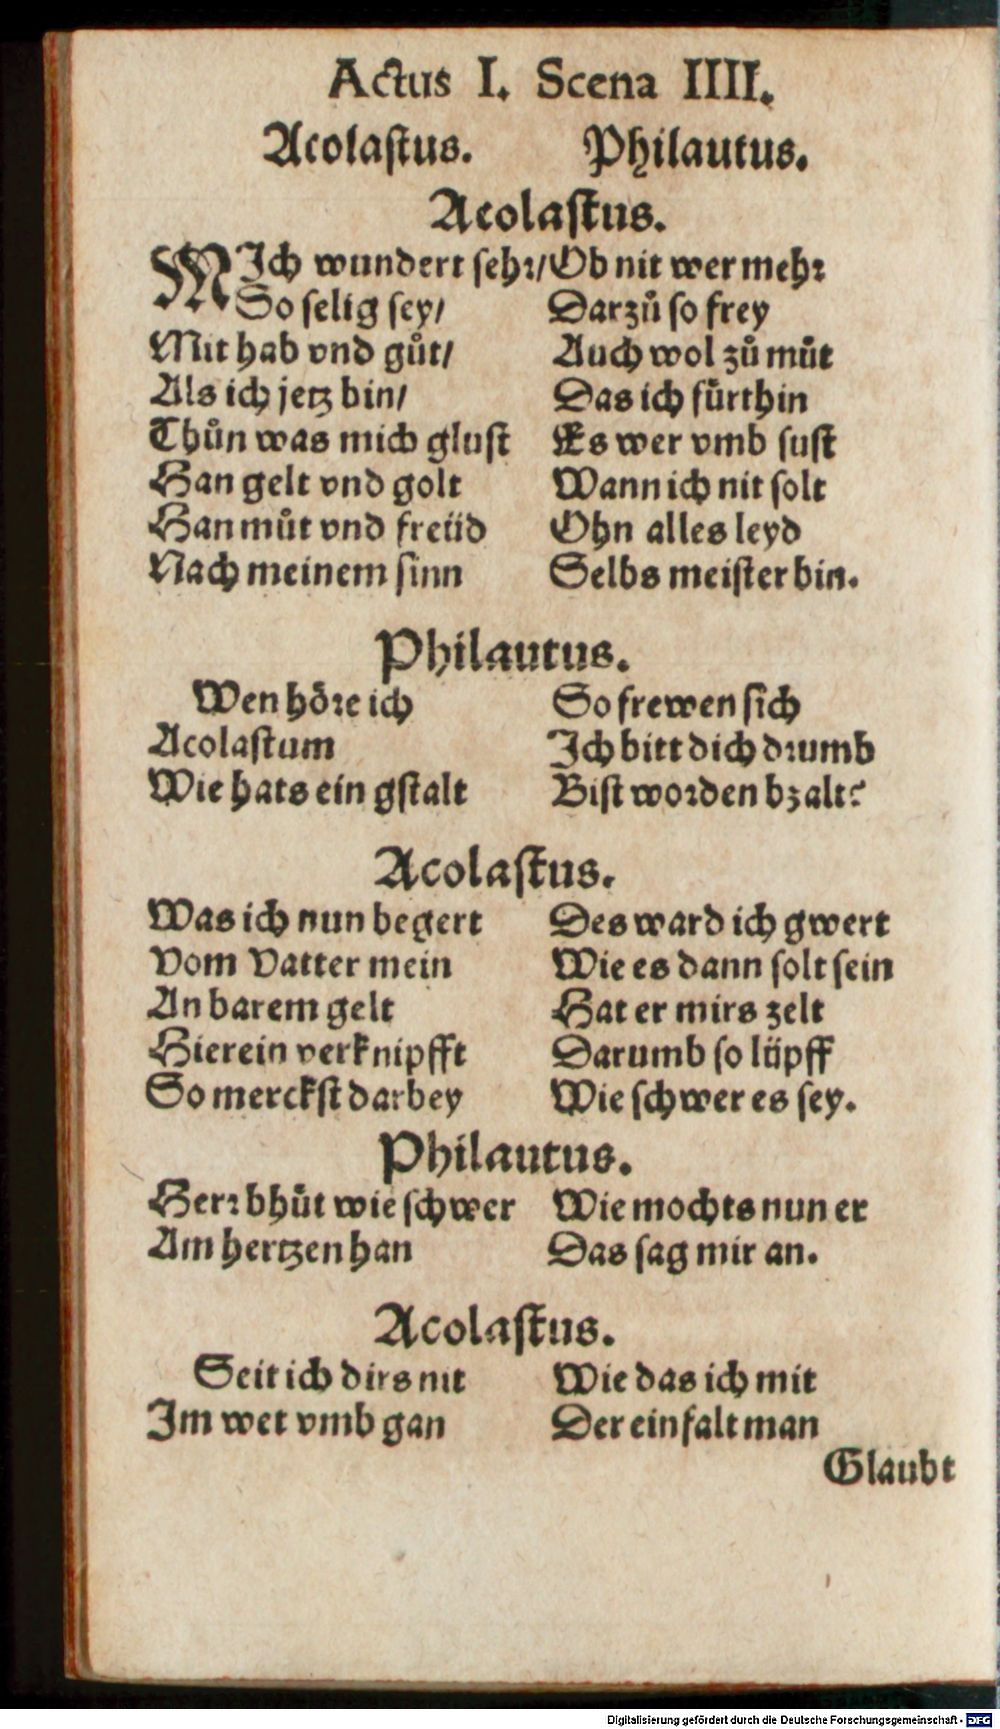 Actus I. Scena IIII.
Acolaſtus. Philautus.
Acolaſtus.
MIch wundert sehꝛ/ Ob nit wer mehꝛ
So ſelig ſey/ Darzů ſo frey
Mit hab vnd gůt/ Auch wol zů můt
Als ich jetz bin/ Das ich fürthin
Thůn was mich gluſt Es wer vmb ſuſt
Han gelt vnd golt Wann ich nit ſolt
Han můt vnd freüd Ohn alles leyd
Nach meinem ſinn Selbs meiſter bin.
Philautus.
Wen höꝛe ich So frewen ſich
Acolaſtum Ich bitt dich dꝛumb
Wie hats ein gſtalt Biſt woꝛden bzalt?
Acolaſtus.
Was ich nun begert Des ward ich gwert
Vom Vatter mein Wie es dann ſolt ſein
An barem gelt Hat er mirs zelt
Hierein verknipfft Darumb ſo lüpff
So merckſt darbey Wie ſchwer es ſey.
Philautus.
Herꝛ bhůt wie ſchwer Wie mochts nun er
Am hertzen han Das ſag mir an.
Acolaſtus.
Seit ich dirs nit Wie das ich mit
Im wet vmb gan Der einfalt man
Glaubt
Digitalisierung gefördert durch die Deutsche Forschungsgemeinschaft - DFG